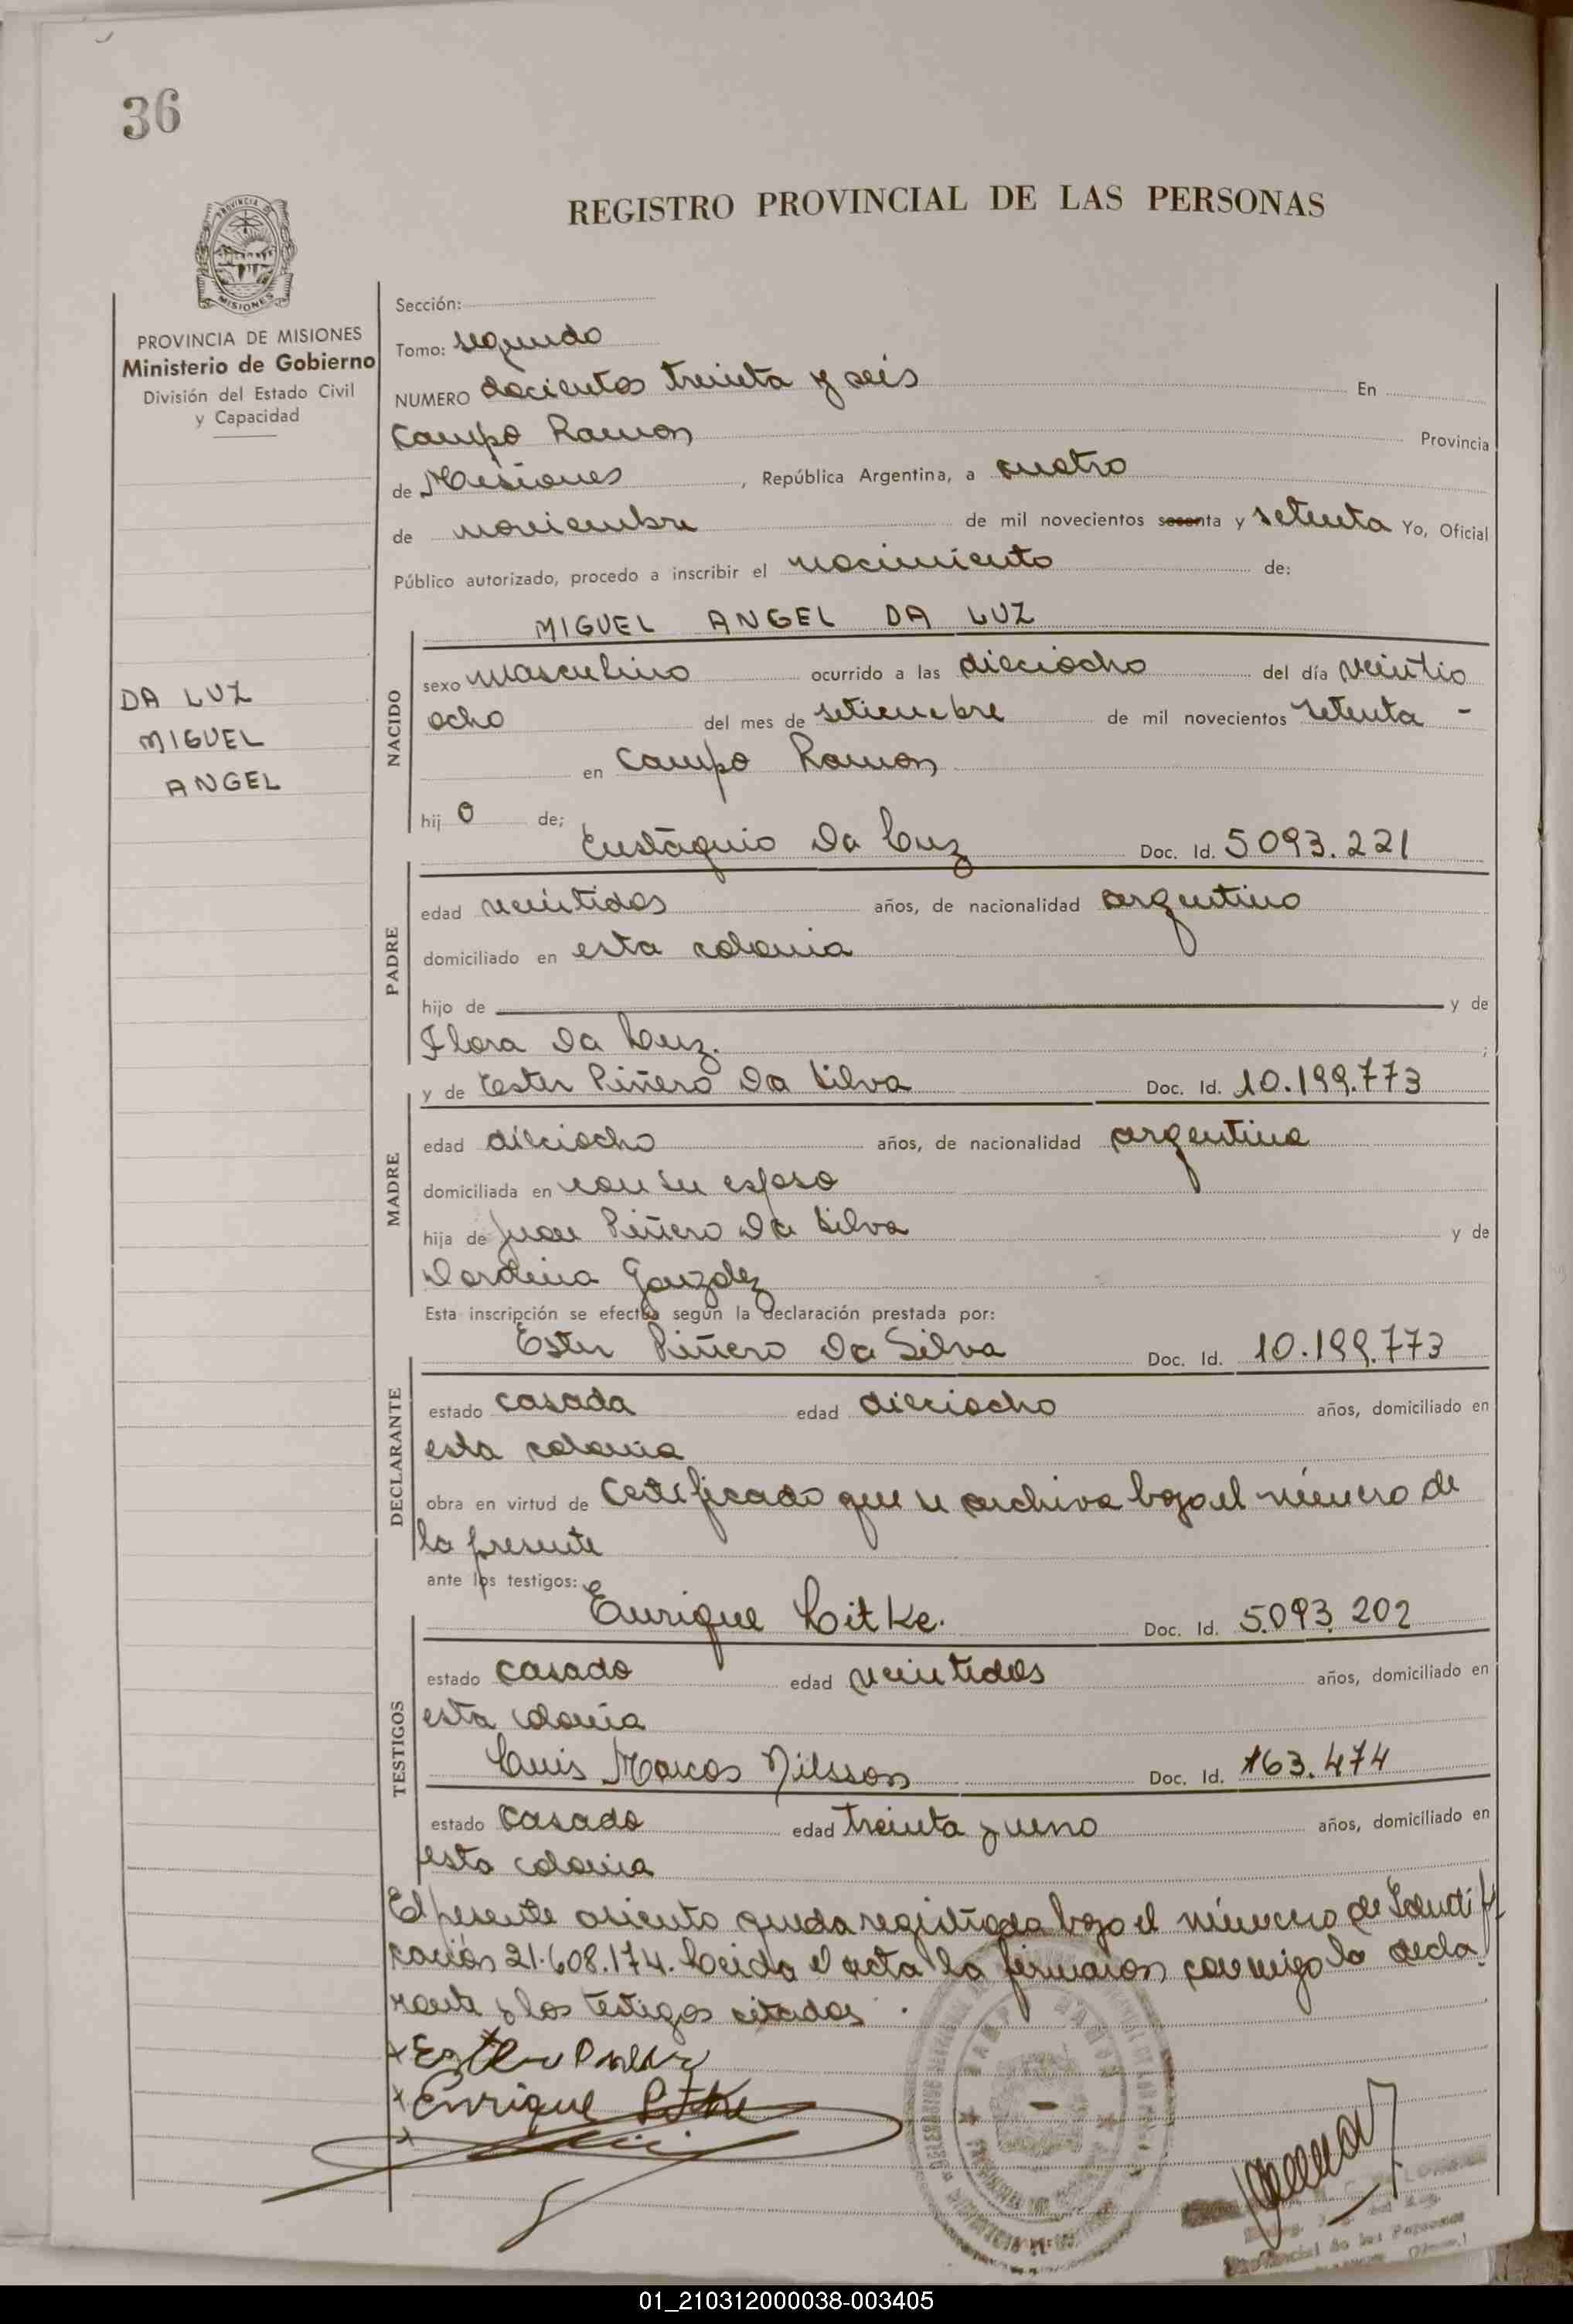 36
REGISTRO PROVINCIAL DE LAS PERSONAS
PROVINCIA DE
MISIONES
PROVINCIA DE MISIONES
Ministerio de Gobierno
División del Estado Civil
y Capacidad
DA LUZ
MIGUEL
ANGEL
Sección:
Tomo: segundo
NUMERO docientos treinta y seis En
Campo Ramon Provincia
de Misiones, República Argentina, a cuatro
de noviembre de mil novecientos sesenta y setenta Yo, Oficial
Público autorizado, procedo a inscribir el nacimiento de:
MIGUEL ANGEL DA LUZ
NACIDO
sexo masculino ocurrido a las dieciocho del día veintio
ocho del mes de setiembre de mil novecientos setenta -
en Campo Ramon
hij o de;
Eustaquio Da Luz Doc. Id. 5093.221
PADRE
edad veintidos años, de nacionalidad argentino
domiciliado en esta colonia
hijo de y de
Flora Da Luz. ;
y de Ester Piñero Da Silva Doc. Id. 10.199.773
MADRE
edad dieciocho años, de nacionalidad argentina
domiciliada en con su esposo
hija de Juan Piñero Da Silva y de
Dordina Gonzalez
Esta inscripción se efectúa según la declaración prestada por:
Ester Piñero Da Silva Doc. Id. 10.199.773
DECLARANTE
estado casada edad dieciocho años, domiciliado en
esta colonia
obra en virtud de Certificado que se archiva bajo el número de
la presente
ante los testigos:
Enrique Litke. Doc. Id. 5.093.202
TESTIGOS
estado casado edad veintidos años, domiciliado en
esta colonia
Luis Marcos Nilsson Doc. Id. 163.474
estado casado edad treinta y uno años, domiciliado en
esta colonia
El presente asiento queda registrado bajo el número de Identifi
cación 21.608.174. Leida el acta la firmaron conmigo la decla
rante y los testigos citados.
Enrique Litke
CAMPO RAMON
Provincial de las Personas
01_210312000038-003405